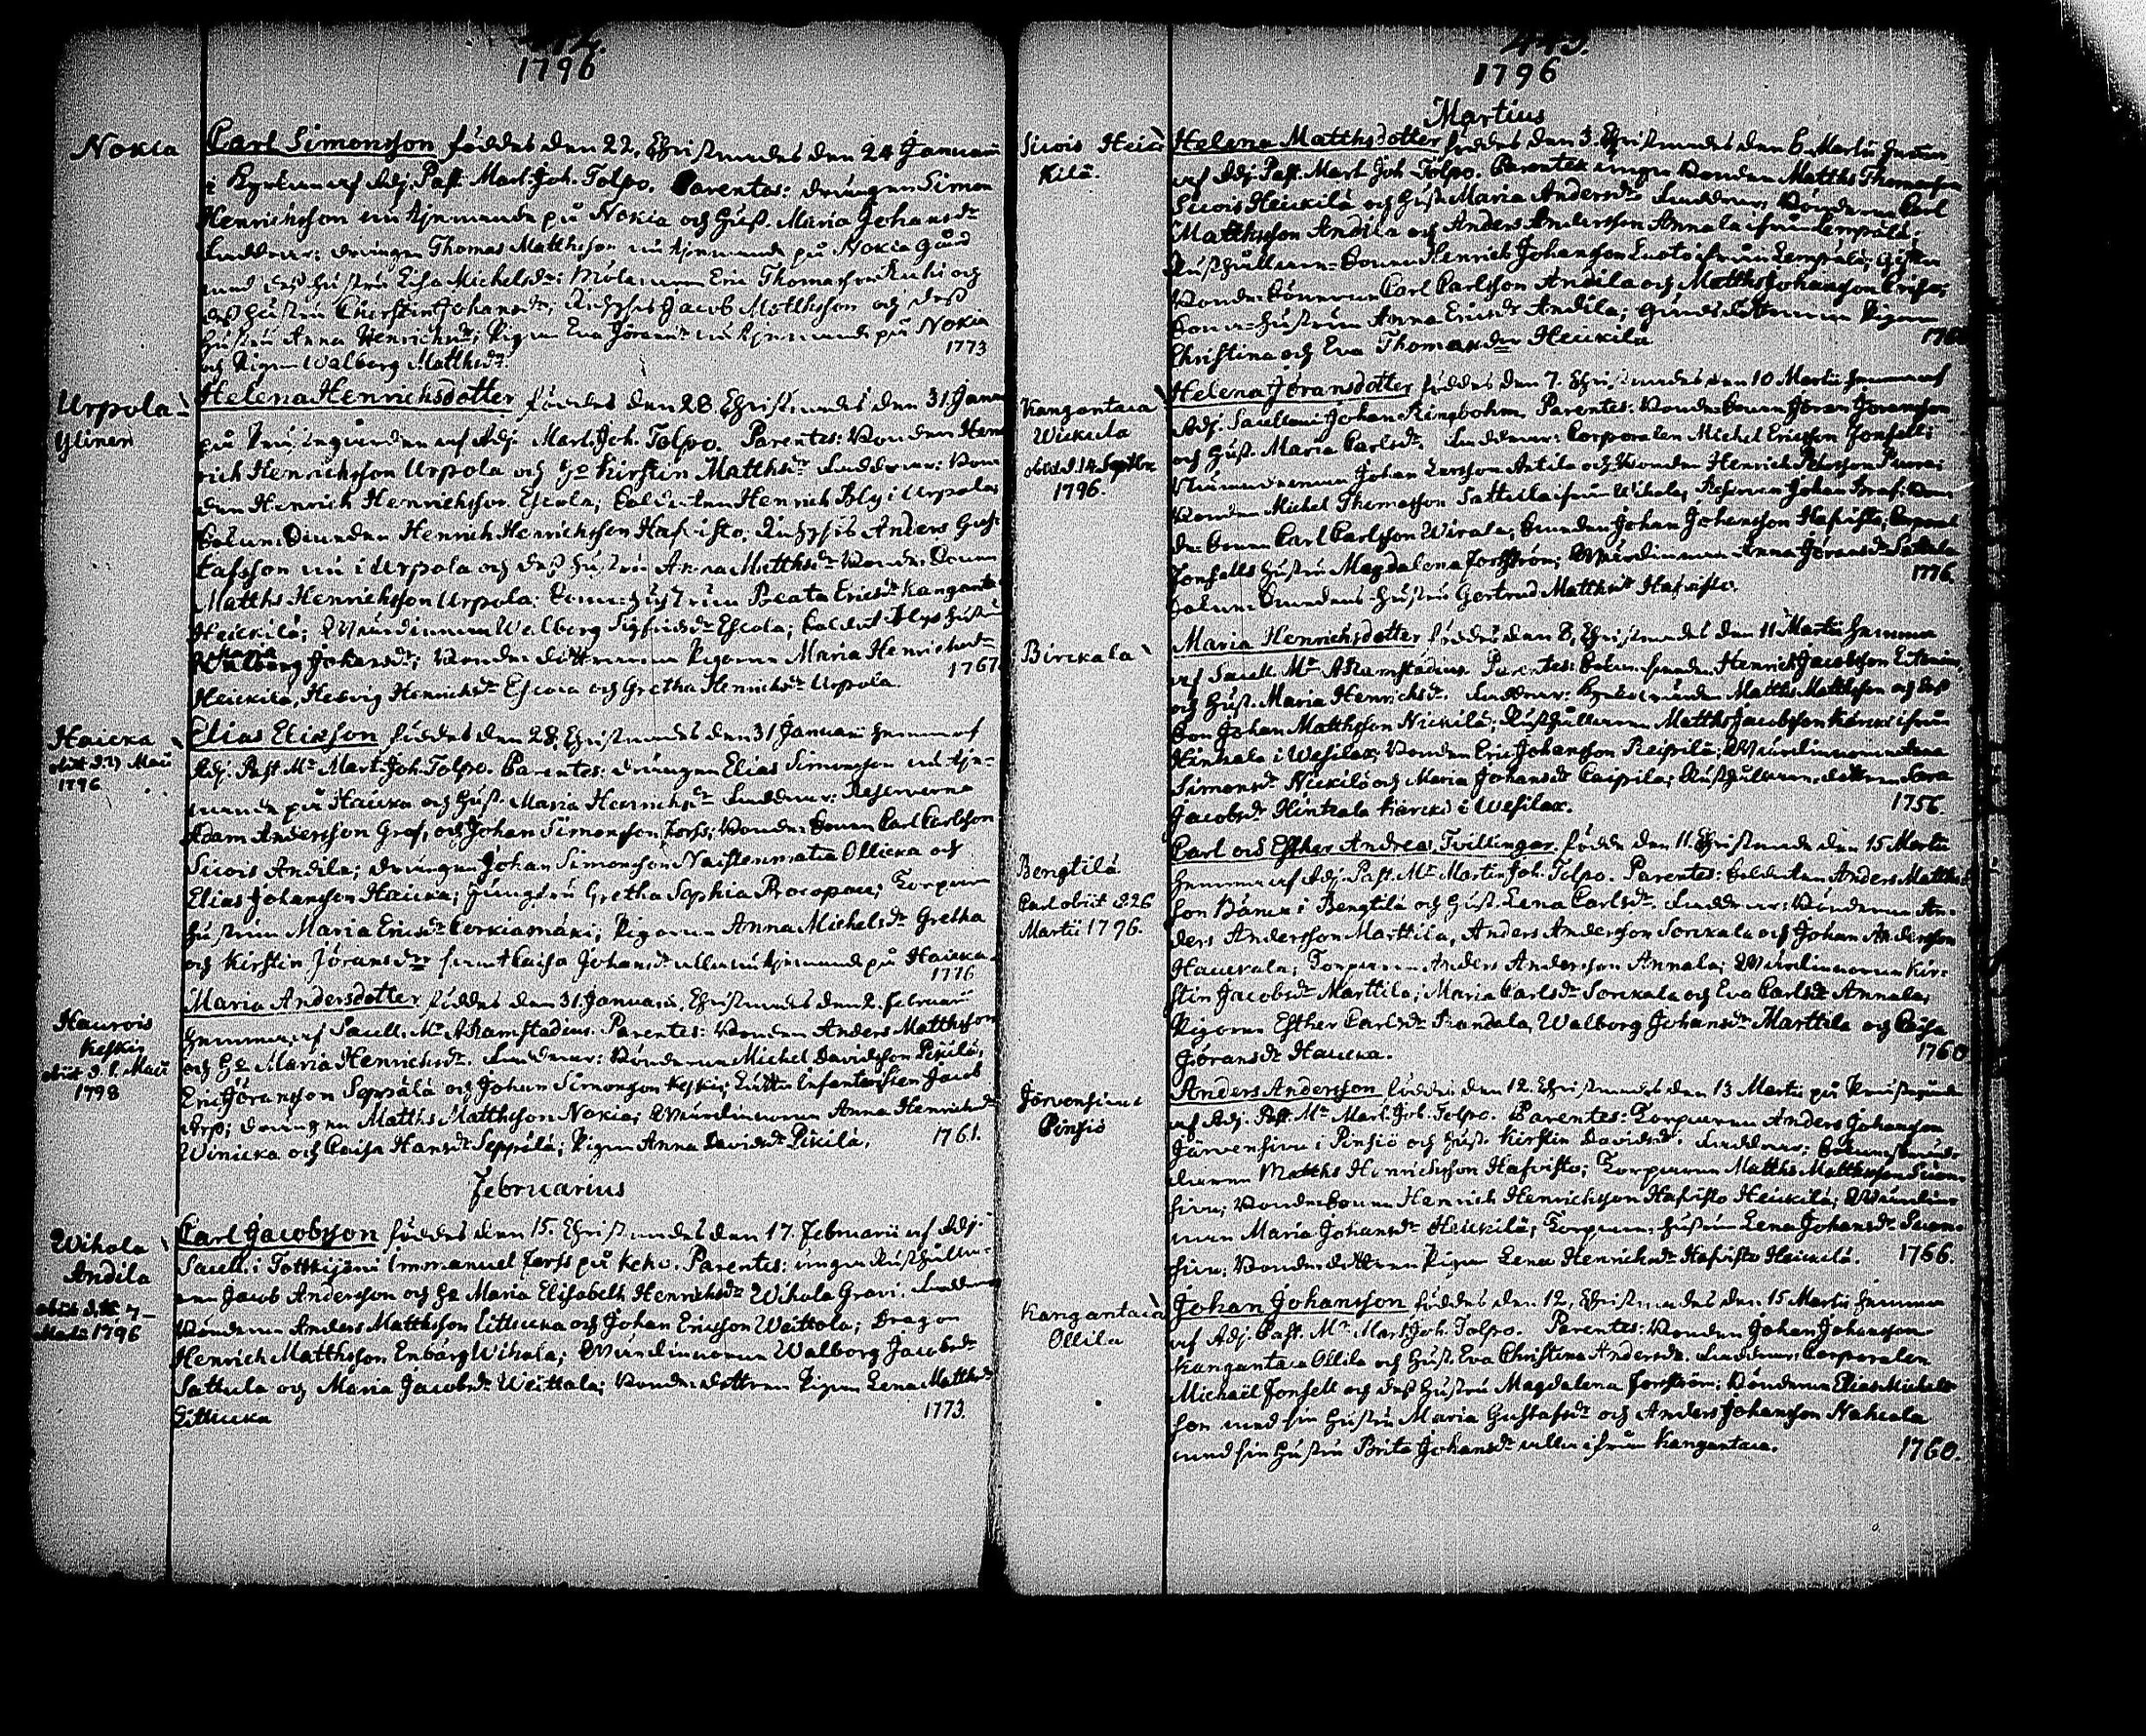 1796
Nokia
Carl Simonsson föddes den 22, Christnades den 24 Januarii
i Kyrkan af Adj. Past. Mart. Joh. Tolpo. Parentes: drängen Simon
Henrichsson på Nokia och Hust. Maria Johansdr
Faddrar: drängen Thomas Matthsson på Nokia gård
med dess hustru Lisa Michelsdr: Eric Thomasson och
dess hustru Chirstin Johansdr; Jacob Matthsson och dess
hustru Anna Henrichsdr; Pigan Eva Jöransdr på Nokia
och Pigan Walborg Matthsdr. 1773
Urpola
Ylinen
Helena Henrichsdotter föddes den 28 Christnades den 31 Januarii
på af Adj. Mart. Joh. Tolpo. Parentes: Bonden Hen
rich Henrichsson Urpola och H:o Kirstin Matthsdr Faddrar: Bon
den Henrich Henrichsson Escola; Soldaten Henrich Bly i Urpola;
Henrich Henrichsson Hafvisto, Anders Gus
tafsson i Urpola och dess hustru Anna Matthsdr Bonde Sonen
Matths Henrichsson Urpola; Beata Ericsdr Kanganta
Heickilä; Wärdinnan Walborg Sigfridsdr Escola; Soldat Blys hustru
Walborg Johansdr; Bonde döttrarna Pigorna Maria Henrichsdr
Heickilä, Hedvig Henrichsdr Escola och Gretha Henrichsdr Urpola. 1767.
Haicka
obiit d. Maii
1796
Elias Eliasson föddes den 28, Christnades den 31 Januarii hemma af
Adj. Past. Mr Mart. Joh. Tolpo. Parentes: drängen Elias Simonsson
på Haicka och Hust. Maria Henrichsdr Faddrar: Reserverna
Adam Andersson Graf, och Johan Simonsson Forss; Bonde Sonen Carl Carlsson
Siuois Andila; drängen Johan Simonsson Naistenmatka Ollicka och
Elias Johansson Haicka; Jungfru Gretha Sophia Procopaeus; Torpare
hustrun Maria Ericsdr Kerkiamäki; Pigorna Anna Michelsdr Gretha
och Kirstin Jöransdrr samt Caisa Johansdr på Haicka.
1776
Haurois
Keskis
obiit d. 1. Maii
1798
Maria Andersdotter föddes den 31. Januarii, Christnades den 2. Februarii
hemma, af Sacell. Mr A. Ramstadius. Parentes: Bonden Anders Matthsson
och H:o Maria Henrichsdr. Faddrar: Bönderna Michel Davidsson Pickilä,
Eric Jöransson Seppälä och Johan Simonsson Keskis; Infanteristen Jacob
drängen Matths Matthsson Nokia; Wärdinnorna Anna Henrichsdr
Winicka och Caisa Hansdr Seppälä; Pigan Anna Davidsdr Pickilä. 1761.
Februarius
Wihola
Andila
Carl Jacobsson föddes den 15. Christnades den 17. Februarii af Adj.
Sacell. i Tottkijärvi Immanuel Forss på Keho. Parentes: unga Rusthålla-
ren Jacob Andersson och H:o Maria Elisabeth Henrichsdr Wihola Gravi. Faddrar
Bönderna Anders Matthsson Littucka och Johan Ericsson Weittola; Dragon
Henrich Matthsson Enbärg Wihola; Wärdinnorna Walborg Jacobsdr
Sattula och Maria Jacobsdr Weittala; Bonde dottren Pigan Lena Matthsdr
Littucka 1773.
1796
Martius
Siuois Heic
kilä.
Helena Matthsdotter föddes den 3. Christnades den 6. Martii hemma
af Adj. Past. Mart. Joh. Tolpo. Parentes unga Bonden Matths Thomasson
Siuois Heickilä och Hust. Maria Andersdr Faddrar; Bönderna Carl
Matthsson Andila och Anders Andersson Annala ifrån Lempälä;
Rusthållare-Sonen Henrich Johansson Luoto ifrån Lempälä;
Bonde Sönerna Carl Carlsson Andila och Matths Johansson
Anna Ericsdr Andila;
Christina och Eva Thomasdrr Heickilä
Kangantaca
Wickula
obiit d. 14. Septbr.
1796.
Helena Jöransdotter föddes den 7. Christnades den 10 Martii hemma af
Adj. Sacellani Johan Ringbohm. Parentes: Bonde-Sonen Jöran Jöransson
och Hust. Maria Carlsdr. Faddrar: Corporalen Michel Ericsson Jonsell;
Johan Larsson Antila och Bonden Henrich Petersson Purra;
Bonden Michel Thomasson Sattula ifrån Wihola; Reserven Johan Graf; Bon-
de-Sonen Carl Carlsson Wirala; Johan Johansson Hafvisto; Corporal
Jonsells hustru Magdalena Forsström; Wärdinnan Anna Jöransdr Sattula
hustru Gertrud Matthsdr Hafvisto. 1776.
Birckala
Maria Henrichsdotter föddes den 8, Christnades den 11 Martii hemma
af Sacell. Mr A. Ramstadius. Parentes: Henrich Jacobsson
och Hust. Maria Henrichsdr. Faddrar: Matths Matthsson och dess
Son Johan Matthsson Nickilä; Rusthållaren Matths Jacobsson Kärcki ifrån
Hinkala i Wesilax; Bonden Eric Johansson Reipilä; Wärdinnorna
Simonsdr Nickilä och Maria Johansdr Caipila; Rusthållare dottren Cora
Jacobsdr Hinkala Kärcki i Wesilax. 1756.
Bengtilä
Carl obiit d. 26
Martii 1796.
Carl och Esther Andreae Tvillingar födde den 11. Christnade den 15 Martii
hemma af Adj. Past. Mr Martin Joh. Tolpo. Parentes: Soldaten Anders Matths-
son i Bengtilä och Hust. Lena Carlsdr. Faddrar: Bönderna An-
ders Andersson Marttila, Anders Andersson Sorckala och Johan Andersson
Hauckala; Torparen Anders Andersson Annala; Wärdinnorna Kir-
stin Jacobsdr Marttila; Maria Carlsdr Sorckala och Eva Carlsdr Annala;
Pigorna Esther Carlsdr Randala, Walborg Johansdr Marttila och Caisa
Jöransdr Haucka. 1760
Järvensivu
Pinsiö
Anders Andersson föddes den 12. Christnades den 13 Martii på
af Adj. Past. Mr Mart. Joh. Tolpo. Parentes: Torparen Anders Johansson
Järvensivu i Pinsiö och Hust. Kirstin Davidsdr. Faddrar:
Matths Henrichsson Hafvisto; Torparen Matths Matthsson
Bonde Sonen Henrich Henrichsson Hafvisto Heickilä;
Maria Johansdr Heickilä; Torpare-hustrun Lena Johansdr
Bonde dottren Pigan Lena Henrichsdr Hafvisto Heickilä. 1766.
Kangantaca
Ollila
Johan Johansson föddes den 12, Christnades den 15 Martii hemma
af Adj. Past. Mr Mart. Joh. Tolpo. Parentes: Bonden Johan Johansson
Kangantaca Ollila och Hust. Eva Christina Andersdr. Faddrar: Corporalen
Michaël Jonsell och dess hustru Magdalena Forsström; Bönderna Elias Michels-
son med sin hustru Maria Gustafsdr och Anders Johansson Nahcala
med sin hustru Brita Johansdr alla ifrån Kangantaca. 1760.